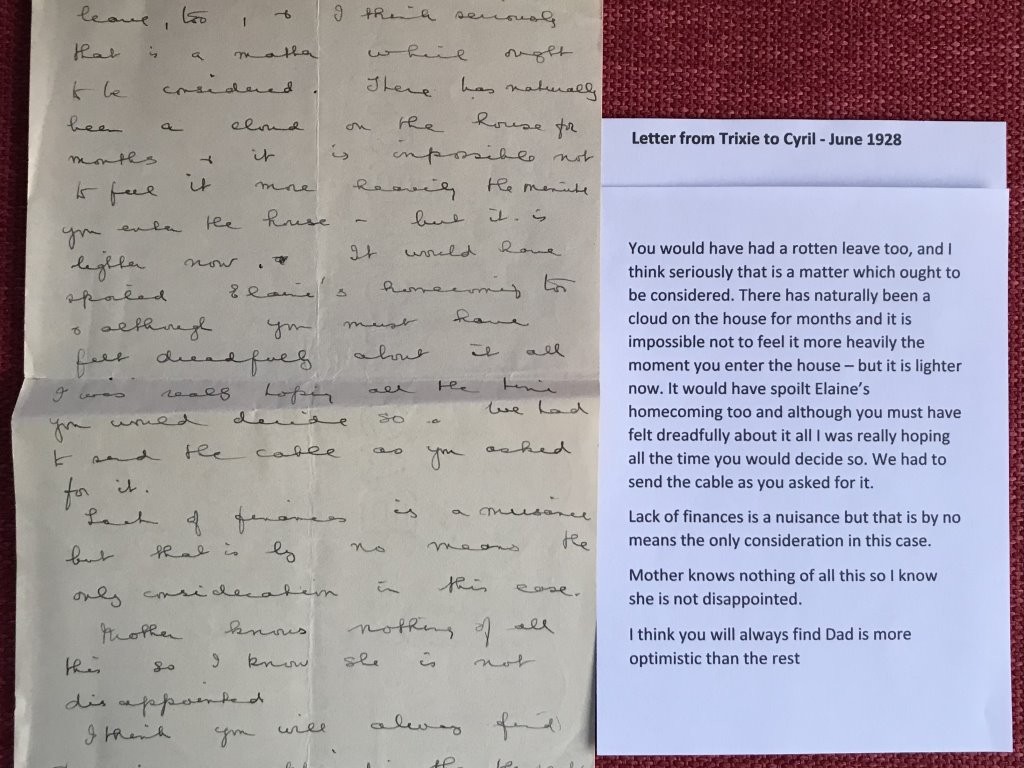 leave, too, & I think seriously
that is a matter which ought
to be considered. There has naturally
been a cloud on the house for
months & it is impossible not
to feel it more heavily the minute
you enter the house – but it is
lighter now. It would have
spoiled Elaine's homecoming too
& although you must have
felt dreadfully about it all
I was really hoping all the time
you would decide so. We had
to send the cable as you asked
for it.
Lack of finances is a nuisance
but that is by no means the
only consideration in this case.
Mother knows nothing of all
this so I know she is not
disappointed
I think you will always find
Letter from Trixie to Cyril - June 1928
You would have had a rotten leave too, and I
think seriously that is a matter which ought to
be considered. There has naturally been a
cloud on the house for months and it is
impossible not to feel it more heavily the
moment you enter the house – but it is lighter
now. It would have spoilt Elaine's
homecoming too and although you must have
felt dreadfully about it all I was really hoping
all the time you would decide so. We had to
send the cable as you asked for it.
Lack of finances is a nuisance but that is by no
means the only consideration in this case.
Mother knows nothing of all this so I know
she is not disappointed.
I think you will always find Dad is more
optimistic than the rest